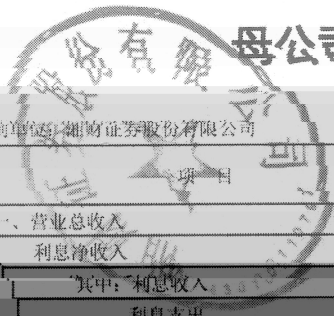 母公司
制单位：湘财证券股份有限公司
项 目
一、营业总收入
利息净收入
其中：利息收入
利息支出